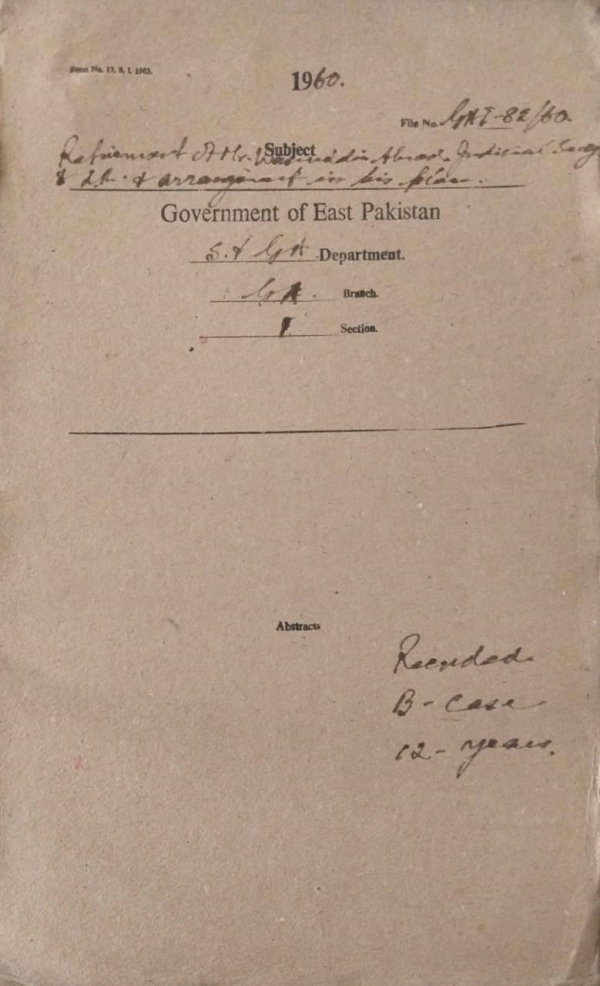 Form No. 17, S. I. 1953.
1960.
File No. GAI-82/60.
Subject
Retirement of Mr. Ahmad, Judicial Secy
& arrangement in his place.
Government of East Pakistan
S. & GA Department.
GA. Branch.
I Section.
Abstracts
Recorded
B - Case
12 - years.